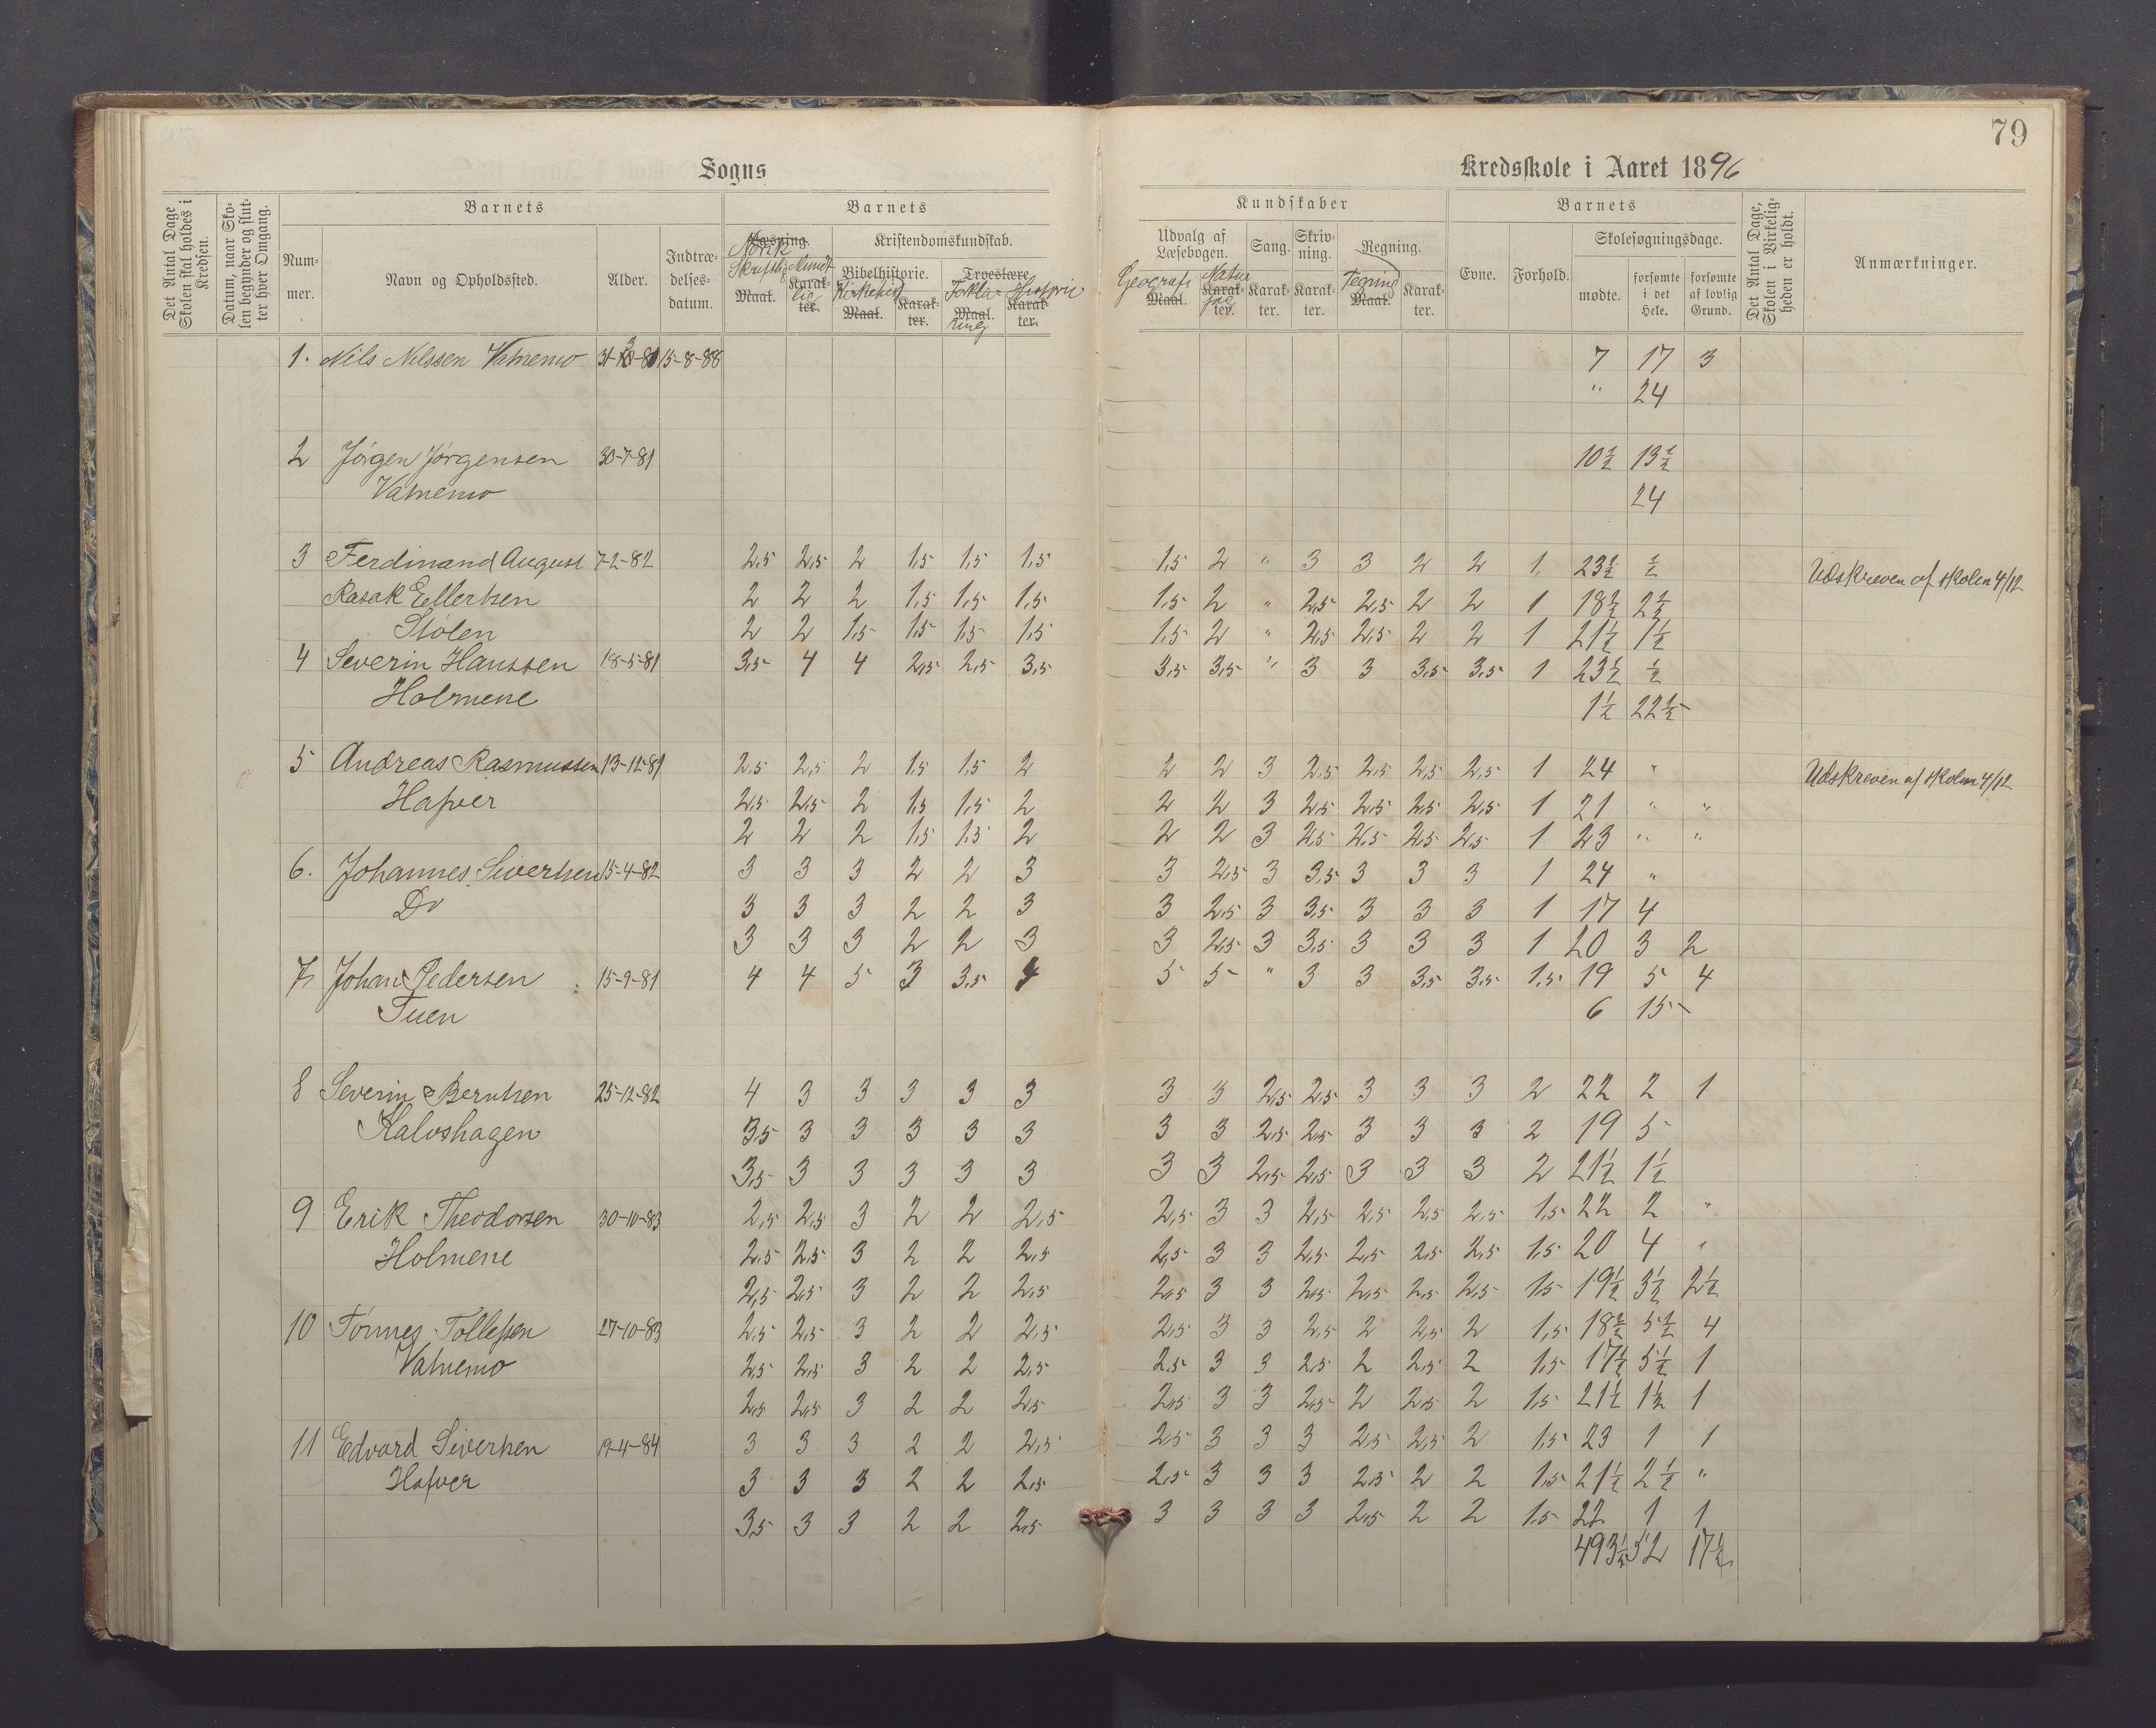 79
Sogns
Kredsskole i Aaret 1896
Det Antal Dage Skolen skal holdes i Kredsen.
Datum, naar Skolen begynder og slutter hver Omgang.
Barnets
Nummer.
Navn og Opholdssted.
Alder.
Indtrædelsesdatum.
Barnets
Læsning.
Norsk
Skriftlig Mundtlig
Maal. Karakter.
Kristendomskundskab.
Bibelhistorie.
Troeslære
Kirkehist Forklaring
Maal. Karakter. Maal. Karakter.
Kundskaber
Udvalg af Læsebogen.
Sang.
Skrivning.
Regning.
Geografi Natur Tegning
Maal. Karakter. Karakter. Karakter. Maal. Karakter.
Barnets
Evne.
Forhold.
Skolesøgningsdage.
mødte.
forsømte i det Hele.
forsømte af lovlig Grund.
Det Antal Dage, Skolen i Virkeligheden er holdt.
Anmærkninger.
1. Nils Nilssen Vatnemo 15-8-88 7 17 3
" 24
2 Jørgen Jørgensen 30-7-81 10½ 13½
Vatnemo 24
3 Ferdinand August 7-2-82 2,5 2,5 2 1,5 1,5 1,5 1,5 2 " 3 3 2 2 1 23½ ½ Udskreven af skolen 4/12
Rasak Ellertsen 2 2 2 1,5 1,5 1,5 1,5 2 " 2,5 2,5 2 2 1 18½ 2½
Stølen 2 2 1,5 1,5 1,5 1,5 1,5 2 " 2,5 2,5 2 2 1 21½ 1½
4 Severin Hanssen 18-5-81 3,5 4 4 2,5 2,5 3,5 3,5 3,5 " 3 3 3,5 3,5 1 23½ ½
Holmene 1½ 22½
5 Andreas Rasmussen 13-12-81 2,5 2,5 2 1,5 1,5 2 2 2 3 2,5 2,5 2,5 2,5 1 24 " Udskreven af skolen 4/12
Hafver 2,5 2,5 2 1,5 1,5 2 2 2 3 2,5 2,5 2,5 2,5 1 21 " "
2 2 2 1,5 1,5 2 2 2 3 2,5 2,5 2,5 2,5 1 23 " "
6. Johannes Sivertsen 15-4-82 3 3 3 2 2 3 3 2,5 3 3,5 3 3 3 1 24 "
Do 3 3 3 2 2 3 3 2,5 3 3,5 3 3 3 1 17 4
3 3 3 2 2 3 3 2,5 3 3,5 3 3 3 1 20 3 2
7 Johan Pedersen 15-9-81 4 4 5 3 3,5 4 5 5 " 3 3 3,5 3,5 1,5 19 5 4
Tuen 6 15
8 Severin Berntsen 25-12-82 4 3 3 3 3 3 3 3 2,5 2,5 3 3 3 2 22 2 1
Kalvshagen 3,5 3 3 3 3 3 3 3 2,5 2,5 3 3 3 2 19 5
3,5 3 3 3 3 3 3 3 2,5 2,5 3 3 3 2 21½ 1½
9 Erik Theodorsen 30-10-83 2,5 2,5 3 2 2 2,5 2,5 3 3 2,5 2,5 2,5 2,5 1,5 22 2 "
Holmene 2,5 2,5 3 2 2 2,5 2,5 3 3 2,5 2,5 2,5 2,5 1,5 20 4 "
2,5 2,5 3 2 2 2,5 2,5 3 3 2,5 2,5 2,5 2,5 1,5 19½ 3½ 2½
10 Tønnes Tollefsen 27-10-83 2,5 2,5 3 2 2 2,5 2,5 3 3 2,5 2 2,5 2 1,5 18½ 5½ 4
Vatnemo 2,5 2,5 3 2 2 2,5 2,5 3 3 2,5 2 2,5 2 1,5 17½ 5½ 1
2,5 2,5 3 2 2 2,5 2,5 3 3 2,5 2 2,5 2 1,5 21½ 1½ 1
11 Edvard Sivertsen 19-4-84 3 3 3 2 2 2,5 2,5 3 3 3 2,5 2,5 2 1,5 23 1 1
Hafver 3 3 3 2 2 2,5 2,5 3 3 3 2,5 2 2 1,5 21½ 2½ "
3,5 3 3 2 2 2,5 3 3 3 3 2,5 2 2 1,5 22 1 1
493½ 52 17½